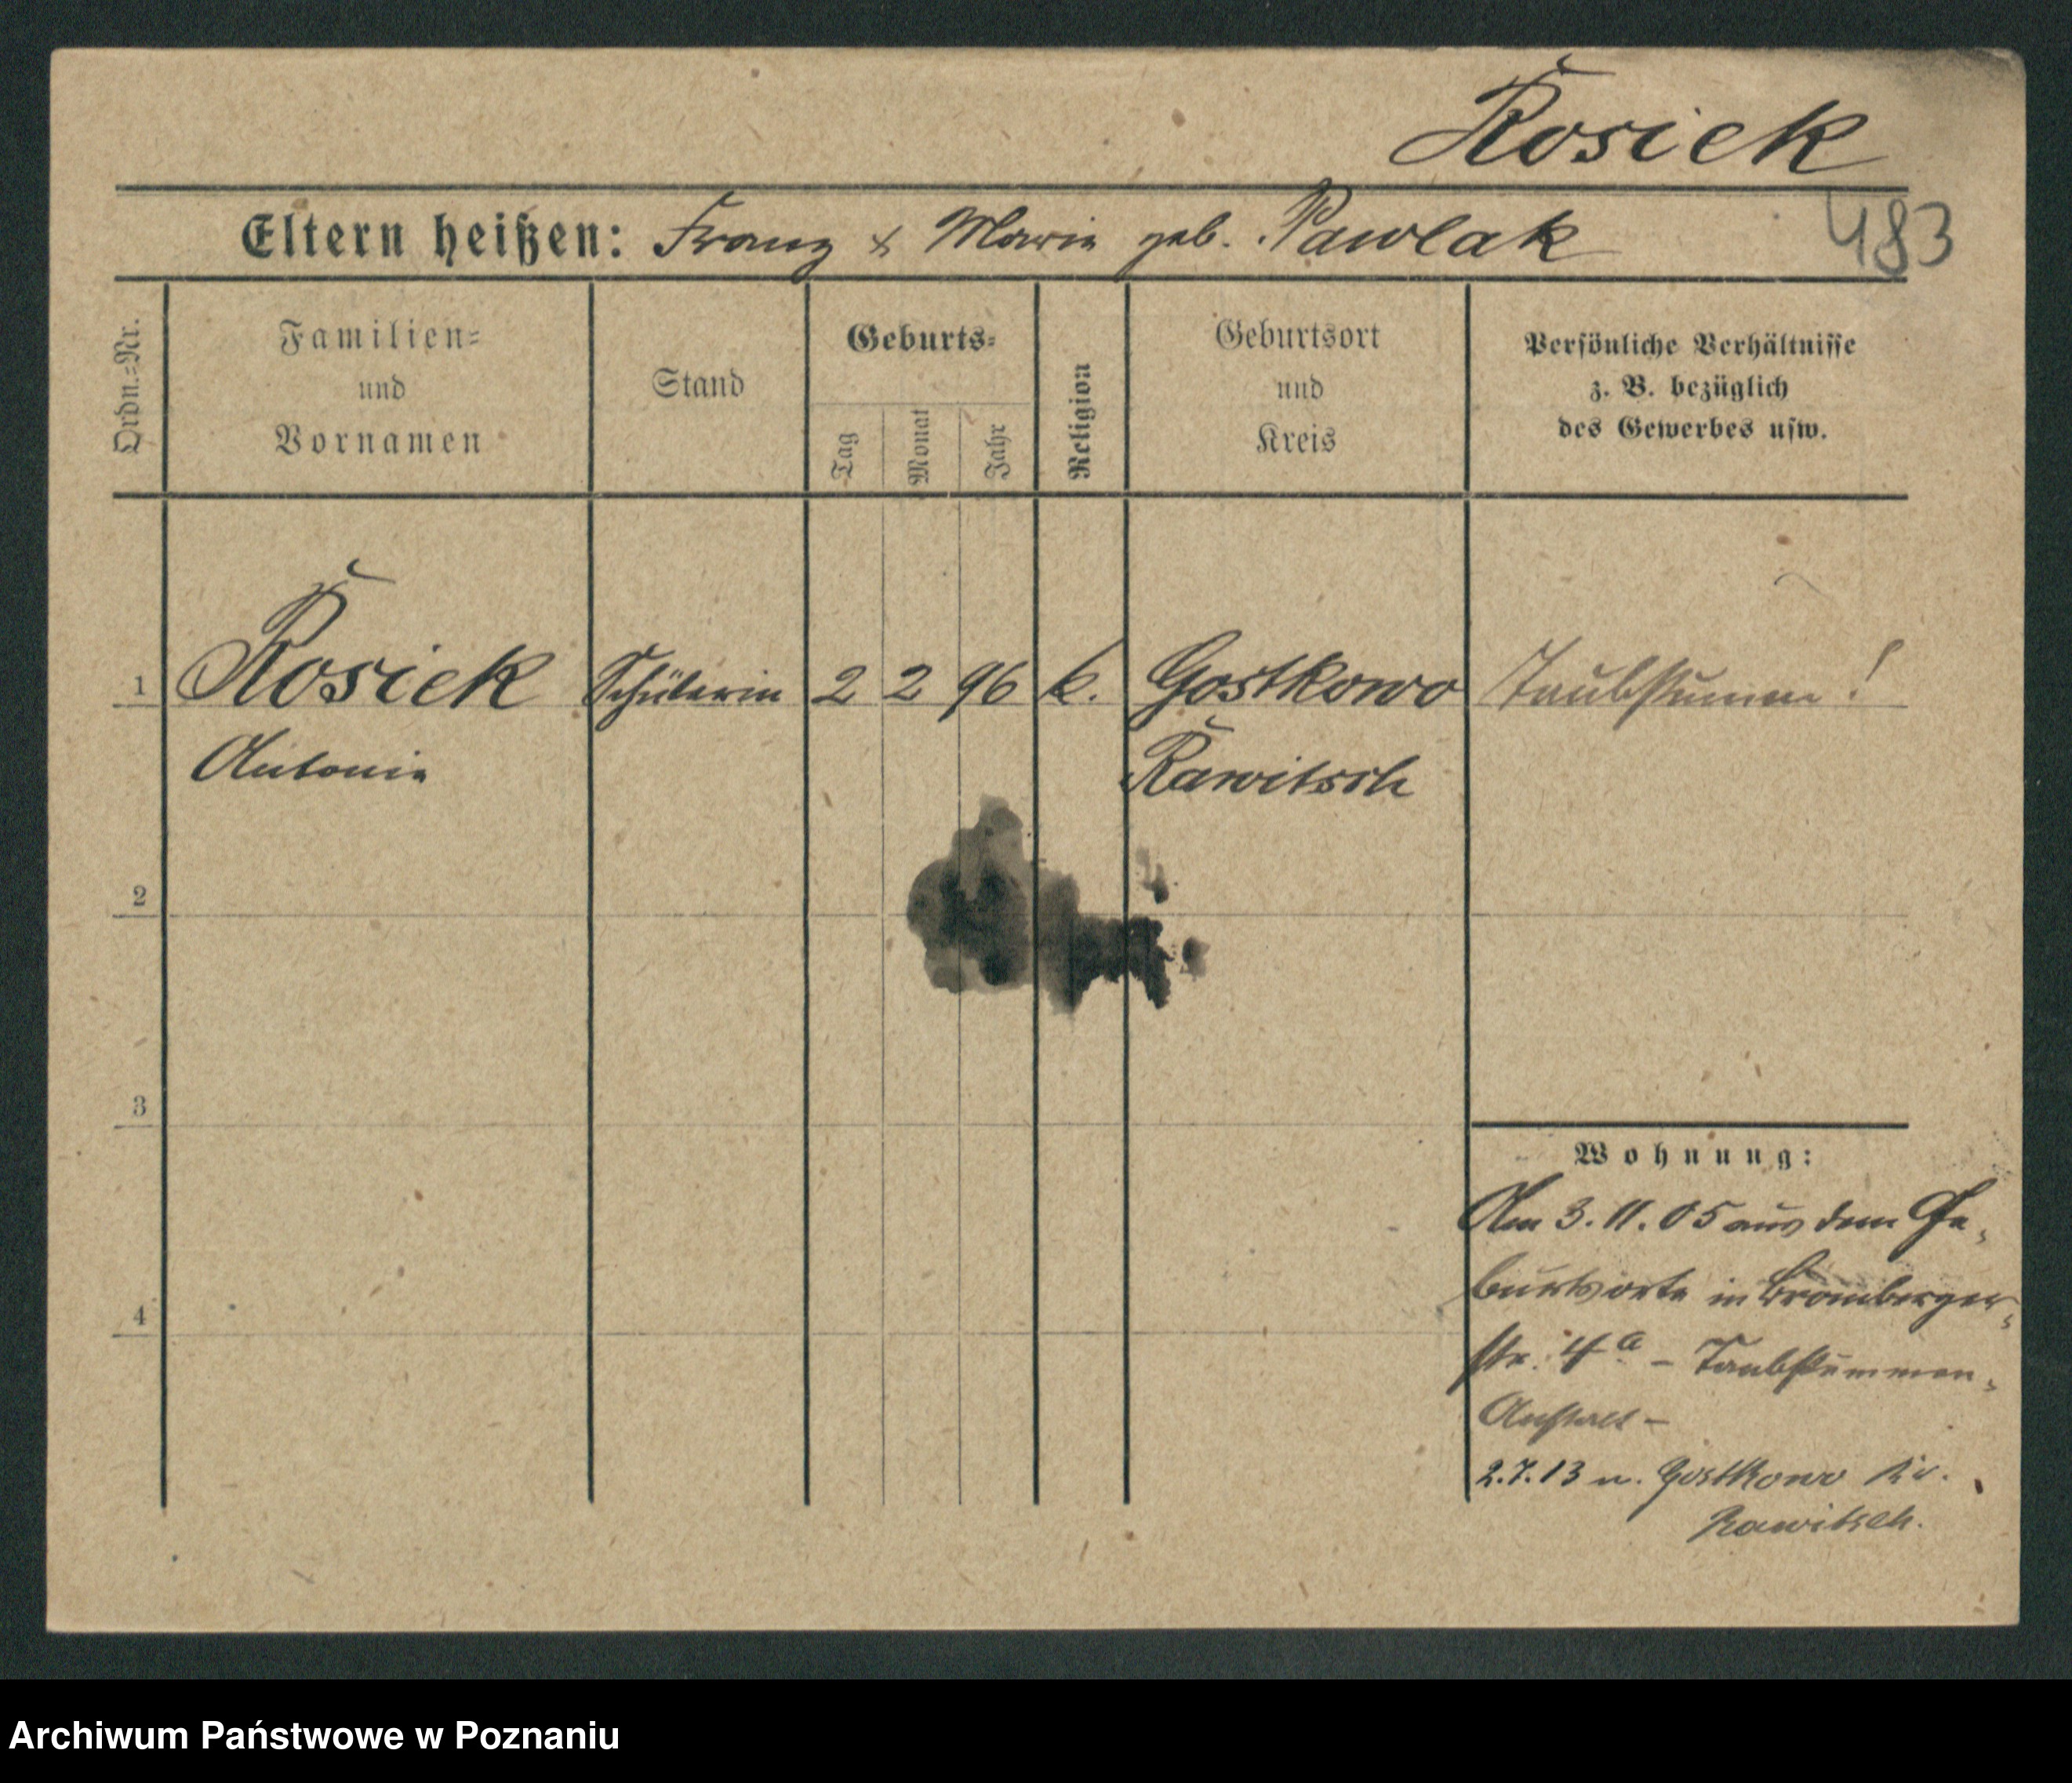 Rosiek
Eltern heißen: Franz & Marie geb. Pawlak
483
Ordn.=Nr.
Familien=
und
Vornamen
Stand
Geburts=
Tag
Monat
Jahr
Religion
Geburtsort
und
Kreis
Persönliche Verhältnisse
z. B. bezüglich
des Gewerbes usw.
1 Rosiek Schülerin 2 2 96 k. Gostkowo Taubstumm!
Antonie Rawitsch
2
3
4
Wohnung:
Am 3.11.05 aus dem Ge-
burtsorte in Bromberger-
str. 4a – Taubstummen-
Anstalt –
2.7.13 n. Gostkowo Kr.
Rawitsch.
Archiwum Państwowe w Poznaniu